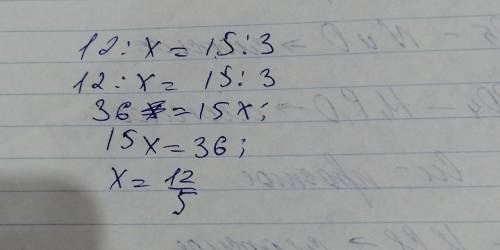 12 : x = 15 : 3
12 : x = 15 : 3
36 = 15x;
15x = 36;
x = 12/5